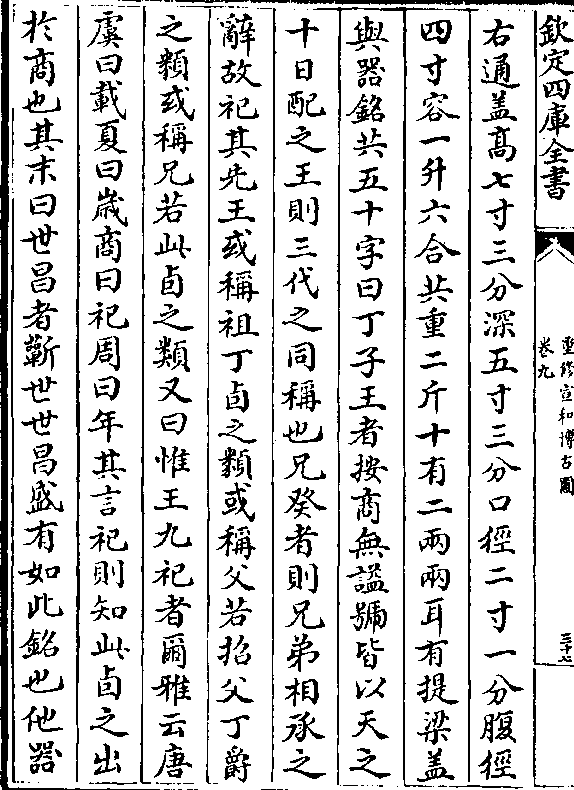 欽定四庫全書
重修宣和博古圖
卷九
三十七
右通盖髙七寸三分深五寸三分口徑二寸一分腹徑
四寸容一升六合共重二斤十有二兩兩耳有提梁盖
與器銘共五十字曰丁子王者按商無諡號皆以天之
十日配之王則三代之同稱也兄癸者則兄弟相承之
辭故祀其先王或稱祖丁卣之類或稱父若招父丁爵
之類或稱兄若此卣之類又曰惟王九祀者爾雅云唐
虞曰載夏曰歲商曰祀周曰年其言祀則知此卣之出
於商也其末曰世昌者蘄世世昌盛有如此銘也他器